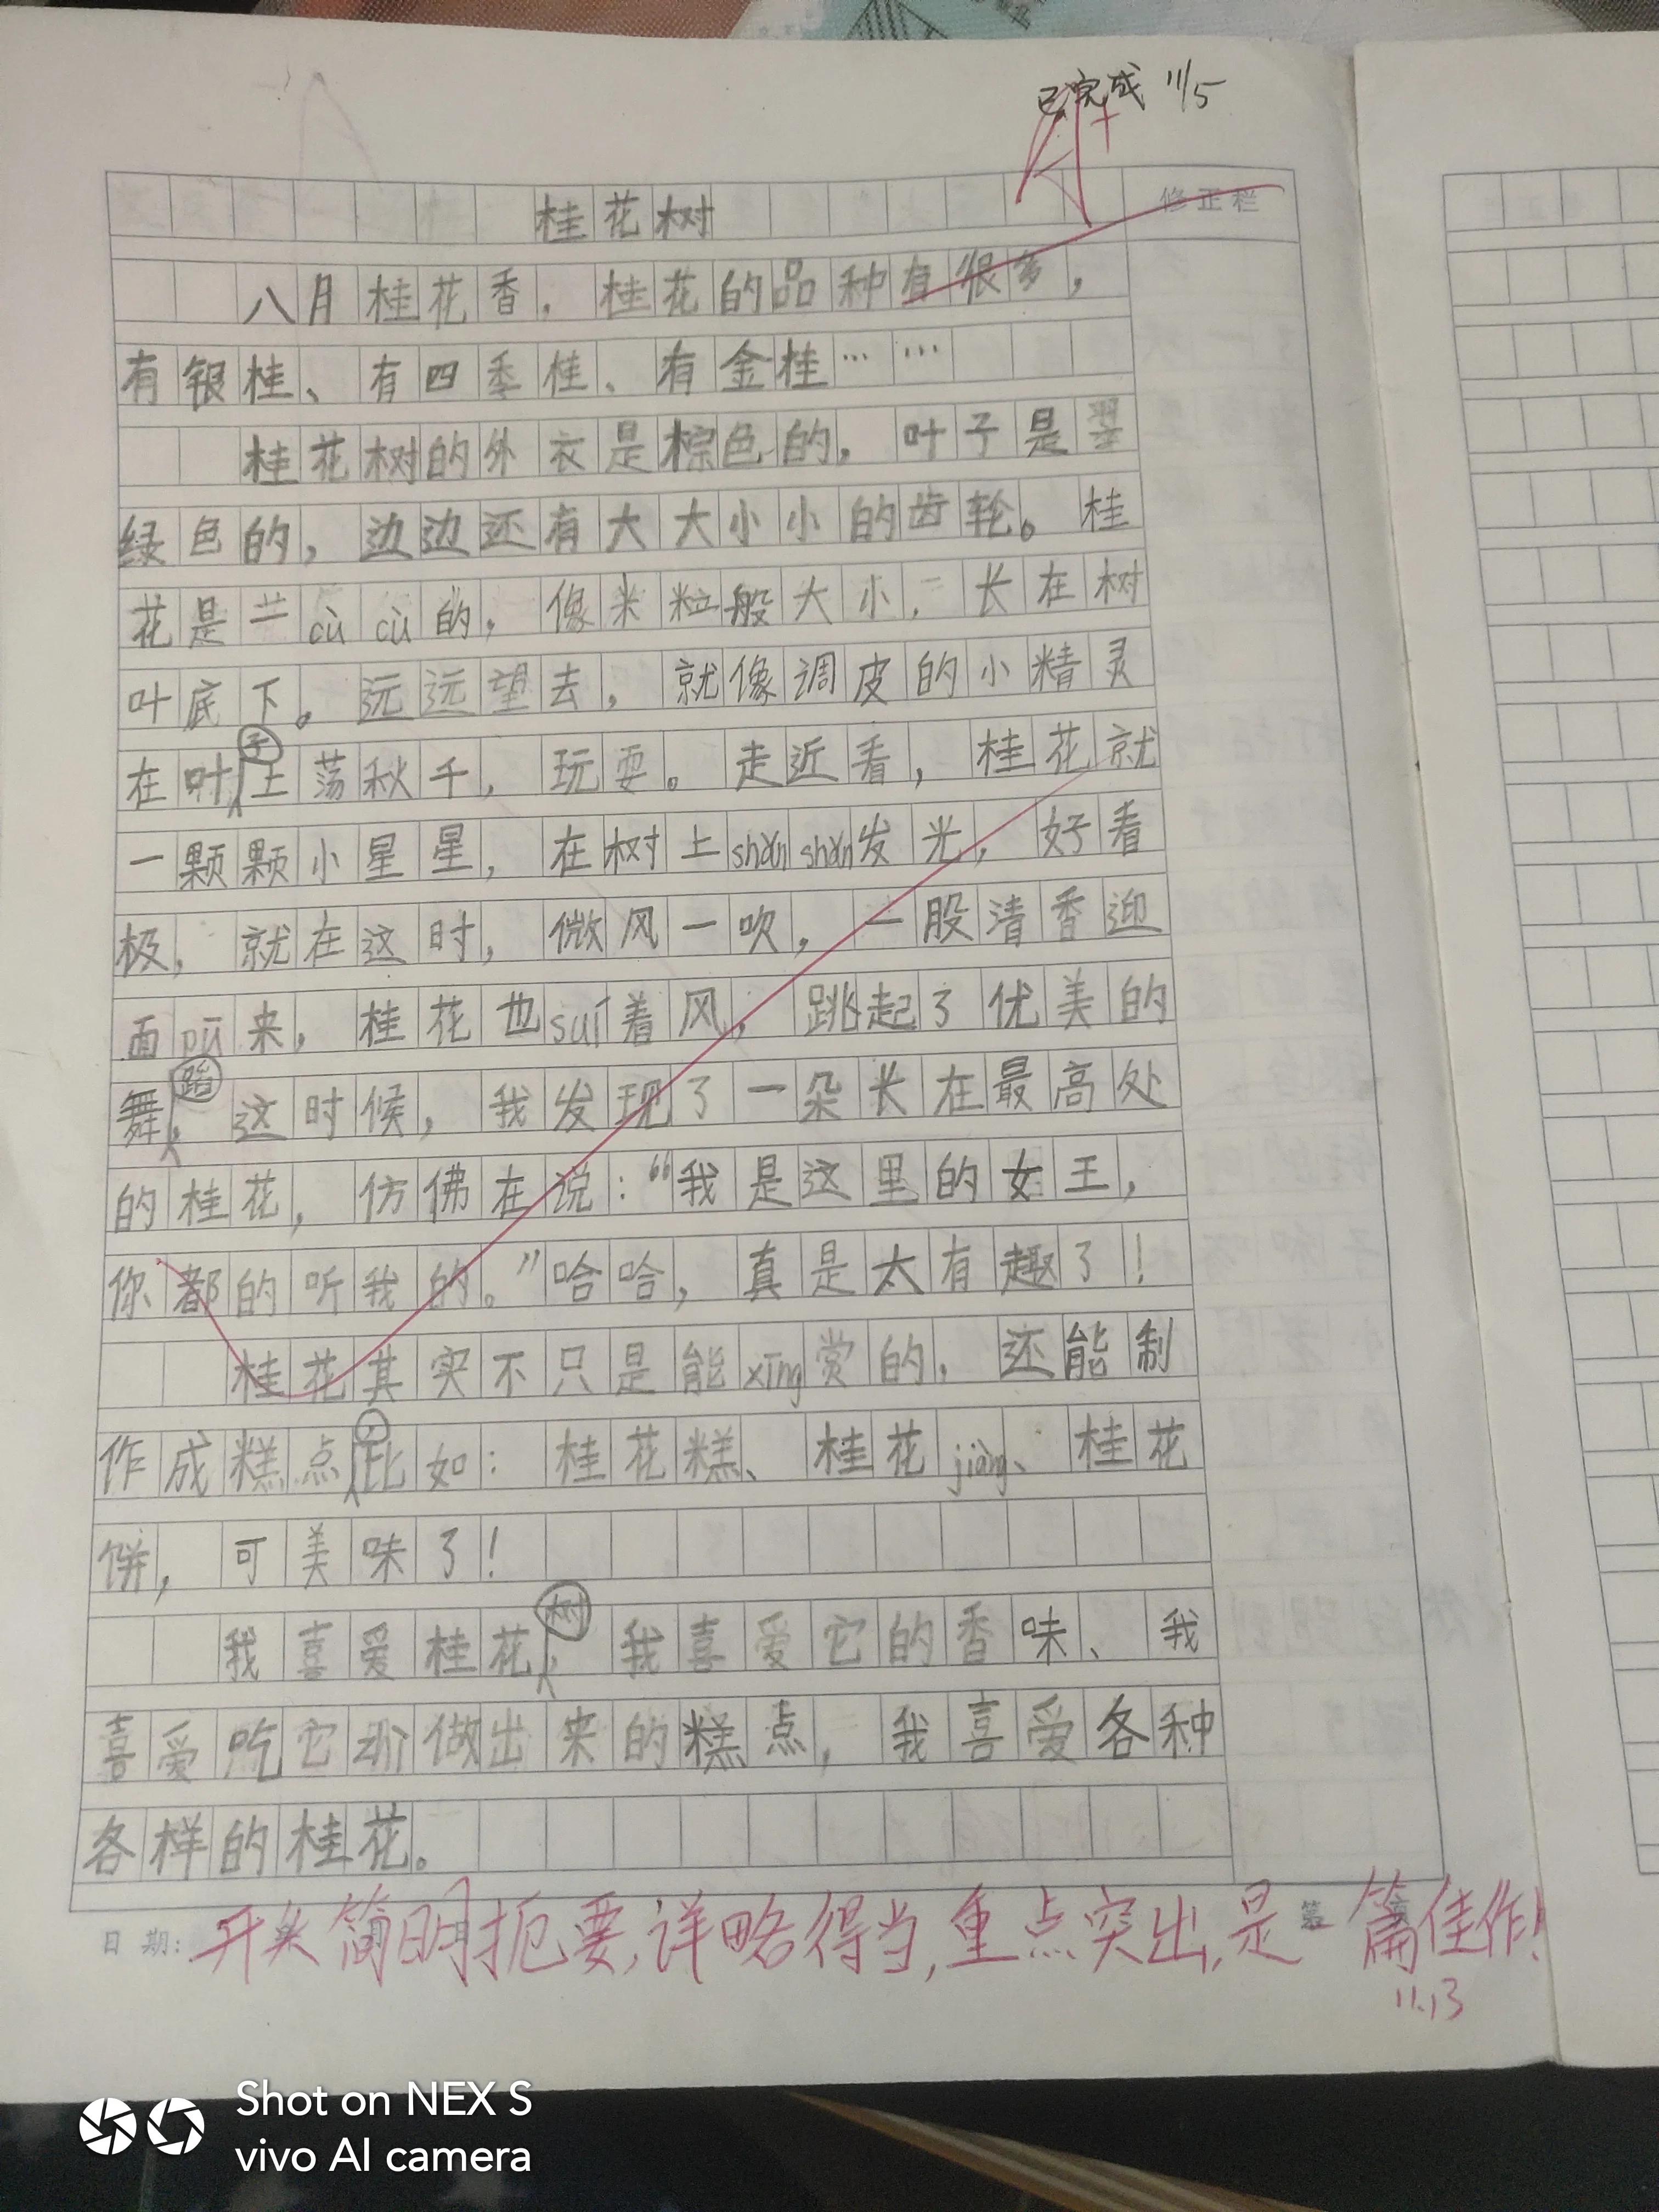 已完成 11/5
A+
修正栏
桂花树
八月桂花香，桂花的品种有很多，
有银桂、有四季桂、有金桂……
桂花树的外衣是棕色的，叶子是翠
绿色的，边边还有大大小小的齿轮。桂
花是一cù cù的，像米粒般大小，长在树
叶底下。远远望去，就像调皮的小精灵
在叶子上荡秋千，玩耍。走近看，桂花就
一颗颗小星星，在树上shǎn shǎn发光，好看
极，就在这时，微风一吹，一股清香迎
面pū来，桂花也suí着风，跳起了优美的
舞蹈，这时候，我发现了一朵长在最高处
的桂花，仿佛在说：“我是这里的女王，
你都的听我的。”哈哈，真是太有趣了！
桂花其实不只是能xīng赏的，还能制
作成糕点，比如：桂花糕、桂花jiàng、桂花
饼，可美味了！
我喜爱桂花树，我喜爱它的香味、我
喜爱吃它们做出来的糕点，我喜爱各种
各样的桂花。
日期：
开头简明扼要，详略得当，重点突出，是一篇佳作！
11.13
Shot on NEX S
vivo AI camera